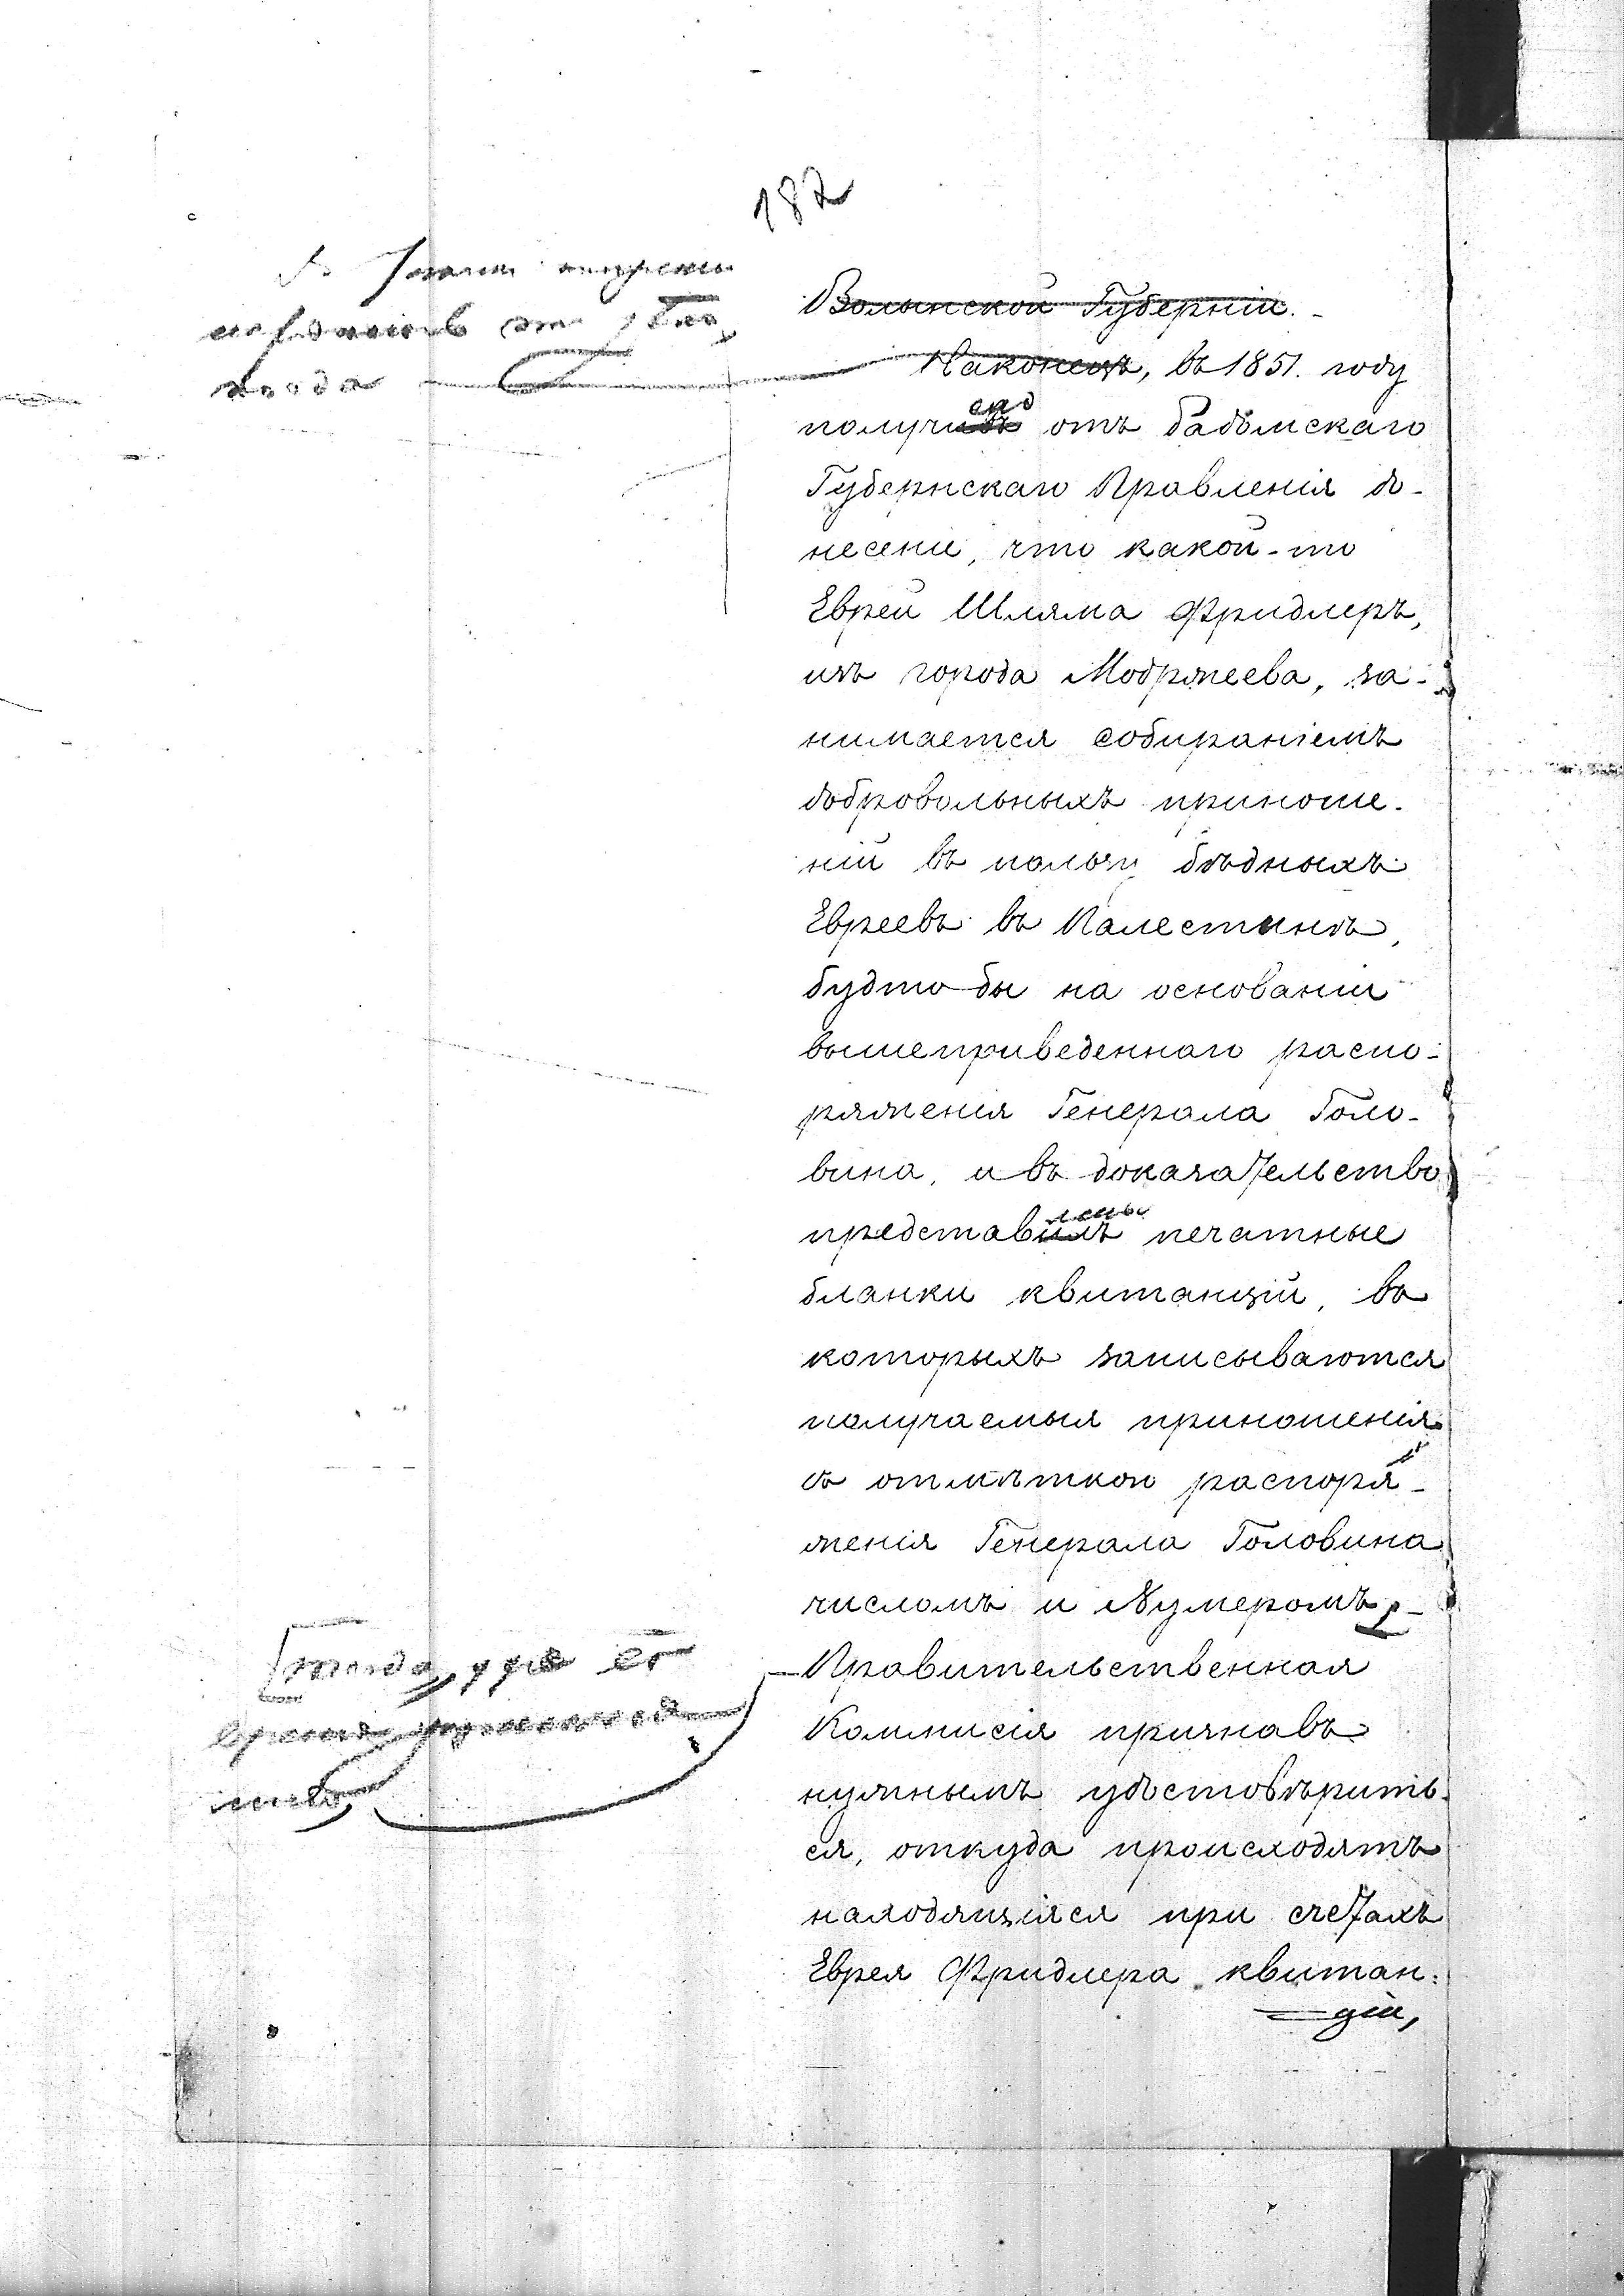 182
Волынской Губерніи. -
Наконецъ, въ 1851. году
получивъ отъ Радомскаго
Губернскаго Правленія до-
несеніе, что какой-то
Еврей Шляма Фридлеръ,
изъ города Модржеева, за-
нимается собираніемъ
добровольныхъ приноше-
ній въ пользу бѣдныхъ
Евреевъ въ Палестинѣ,
будто бы на основаніи
вышеприведеннаго распо-
ряженія Генерала Голо-
вина, и въ доказательство
представилъ печатные
бланки квитанцій, въ
которыхъ записываются
получаемыя приношенія
съ отмѣткою распоря-
женія Генерала Головина
числомъ и Нумеромъ, -
Правительственная
Коммисія признавъ
нужнымъ удостовѣрить-
ся, откуда происходятъ
находящіяся при счетахъ
Еврея Фридлера квитан-
ціи,